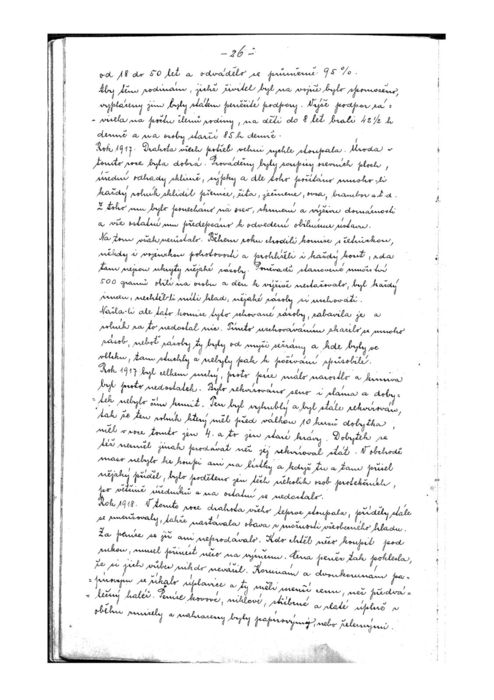 - 26 -
od 18 do 50 let a odvádělo se průměrně 95 %.
Aby těm rodinám, jichž živitel byl na vojně bylo spomoženo,
vypláceny jim byly státem peněžité podpory. Výše podpor zá-
- visela na počtu členů rodiny, na děti do 8 let brali 42½ h
denně a na osoby starší 85 h denně.
Rok 1917. Drahota všech potřeb velmi rychle stoupala. Úroda v
tomto roce byla dobrá. Prováděny byly soupisy osevních ploch,
úřední odhady sklizně, výpoky a dle toho počítáno mnoho-li
každý rolník sklidil pšenice, žita, ječmene, ovsa, bramborů atd.
Z toho mu bylo ponecháno na osev, krmení a výživu domácnosti
a vše ostatní mu předepsáno k odvedení obilnímu ústavu.
Na tom však nezůstalo. Během roku chodili komise s četníkem,
někdy i vojenskou pohotovostí a prohlíželi i každý kout, zda
tam nejsou ukryty nějaké zásoby. Poněvadž stanovené množství
500 gramů obilí na osobu a den k výživě nestačovalo, byl každý
nucen, nechtěl-li míti hlad, nějaké zásoby si uschovati.
Našla-li ale tato komise tyto schované zásoby, zabavila je a
rolník za to nedostal nic. Tímto uschováváním zkazilo se mnoho
zásob, neboť zásoby ty byly od myší sežrány a kde byly ve
vlhku, tam stuchly a nebyly pak k požívání způsobilé.
Rok 1917 byl celkem suchý, proto píce málo narostlo a krmiva
byl proto nedostatek. Bylo rekvirováno seno i sláma a doby-
- tek nebylo čím krmit. Ten byl vyhublý a byl stále rekvirován,
tak že ten rolník který měl před válkou 10 kusů dobytka,
měl v roce tomto jen 4. a to jen staré krávy. Dobytek se
též nesměl jinak prodávat než jej rekviroval stát. V obchodě
maso nebylo ke koupi ani na lístky a když tu a tam přišel
nějaký příděl, bylo poděleno jen těch několik osob protekčních,
po většině úředníků a na ostatní se nedostalo.
Rok 1918. V tomto roce drahota všeho teprve stoupala, příděly stále
se zmenšovaly, takže nastávala obava z možnosti všeobecného hladu.
Za peníze se již ani neprodávalo. Kdo chtěl něco koupit pod
rukou, musel přinést něco na výměnu. Cena peněz tak poklesla,
že si jich vůbec nikdo nevážil. Korunám a dvoukorunám pa-
- pírovým se říkalo úplavice a ty měli menší cenu, než předvá-
- lečný haléř. Peníze kovové, niklové, stříbrné a zlaté úplně z
oběhu zmizely a nahrazeny byly papírovými, nebo železnými.